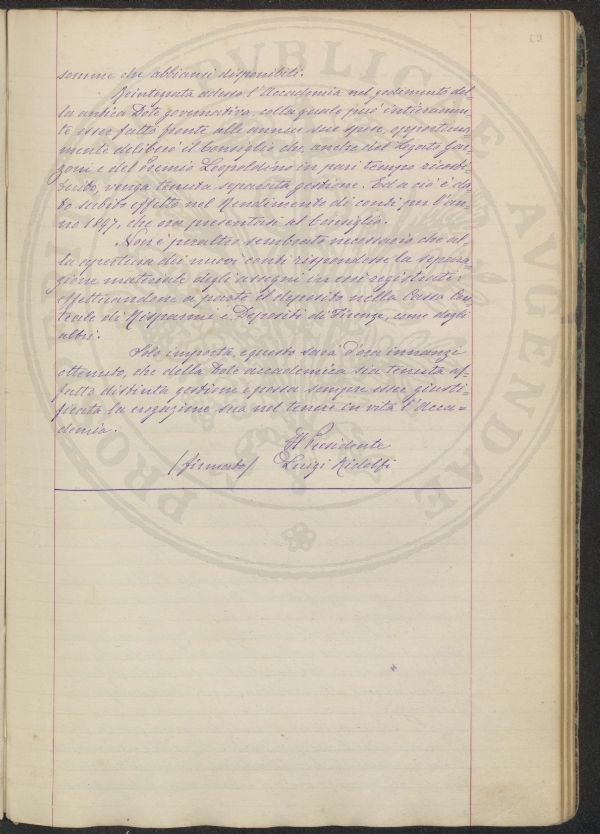 69
somme che abbiansi disponibili.
Reintegrata adesso l'Accademia nel godimento del-
la antica Dote governativa, colla quale può intieramen-
te esser fatto fronte alle annue sue spese, opportuna-
mente deliberò il Consiglio che, anche del Legato Gar-
zoni e del Premio Leopoldino in pari tempo ricosti-
tuito, venga tenuta separata gestione. Ed a ciò è da-
to subito effetto nel Rendimento di conti per l'an-
no 1897, che ora presentasi al Consiglio.
Non è peraltro sembrato necessario che al-
la apertura dei nuovi conti rispondesse la separa-
zione materiale degli assegni in essi registrati;
effettuandone a parte il deposito nella Cassa Cen-
trale di Risparmi e Depositi di Firenze, come degli
altri.
Solo importa, e questo sarà d'ora innanzi
ottenuto, che della Dote accademica sia tenuta af-
fatto distinta gestione e possa sempre esser giusti-
ficata la erogazione sua nel tenere in vita l'Acca-
demia.
Il Presidente
(firmato) Luigi Ridolfi
PROSPERITATI PUBLICAE AUGENDAE